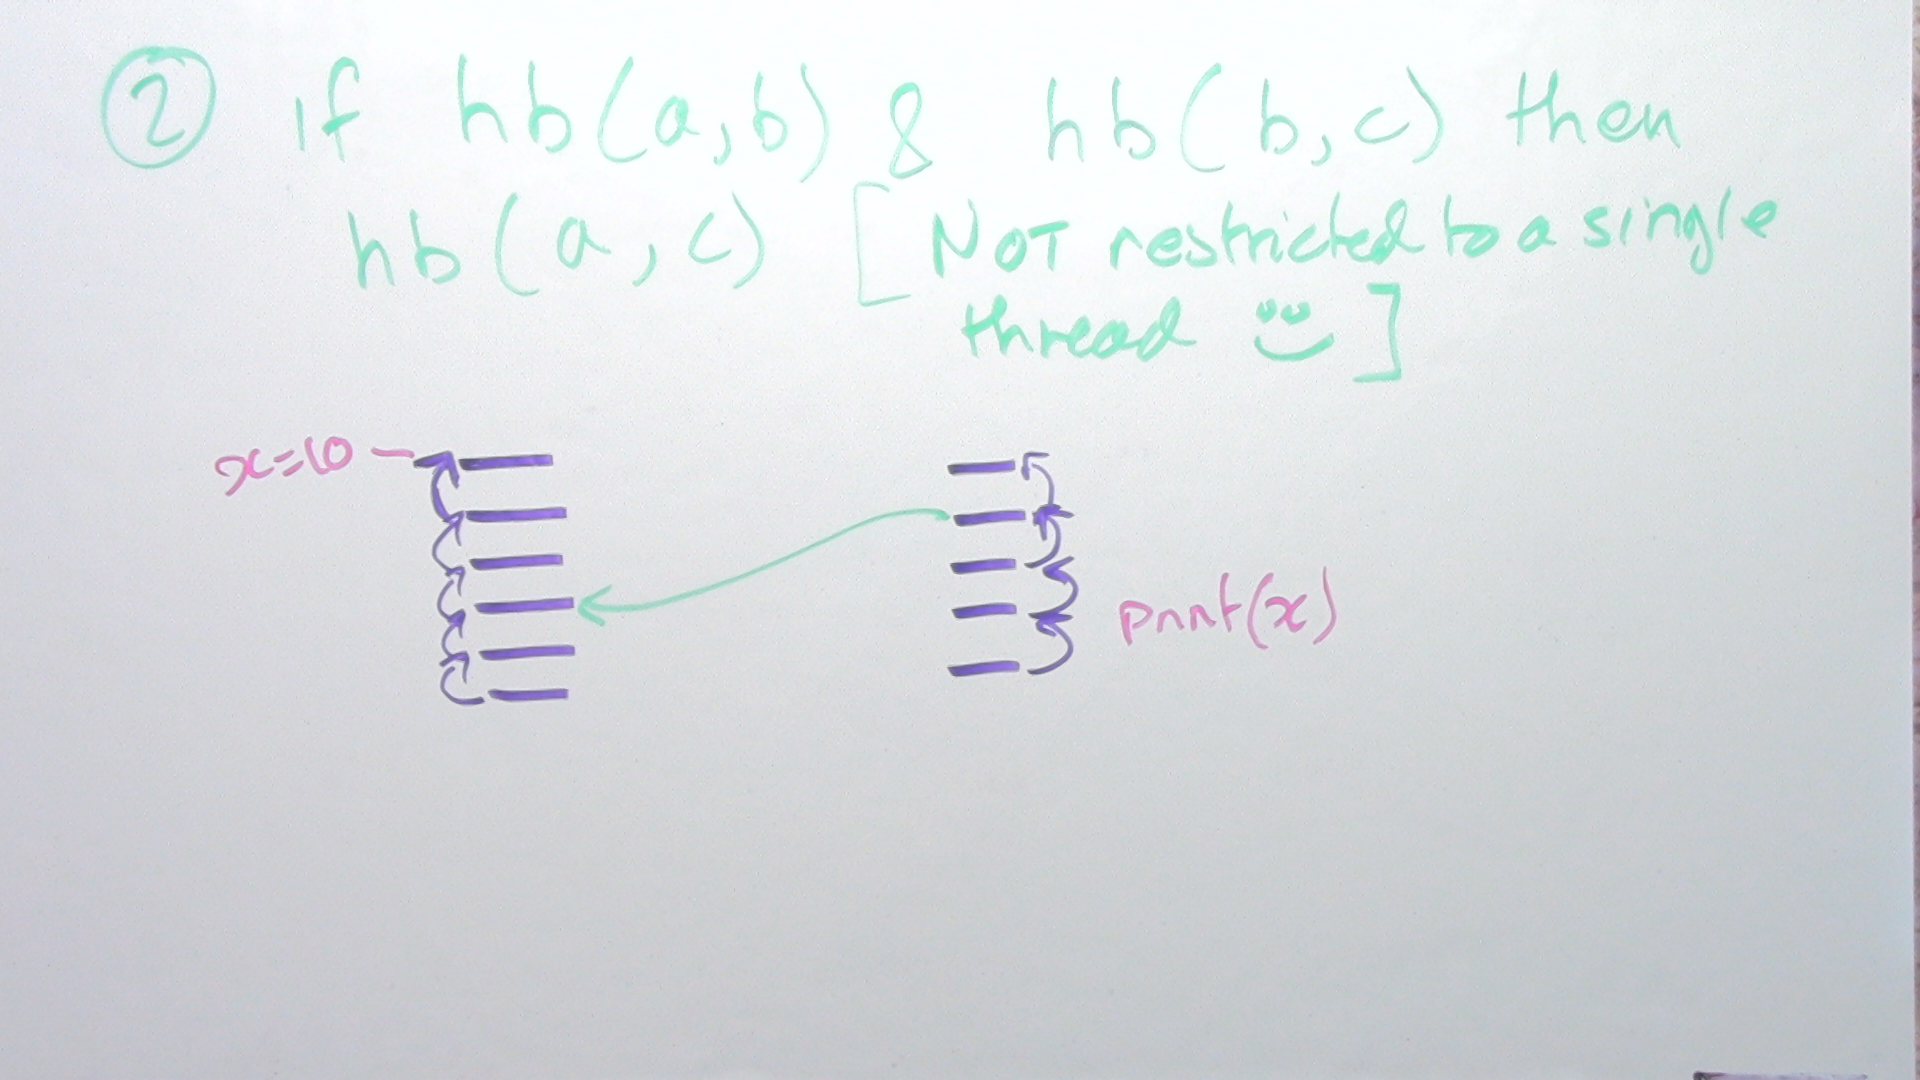 ② if hb(a,b) & hb(b,c) then
hb(a,c) [NOT restricted to a single
thread ]
x=10
print(x)